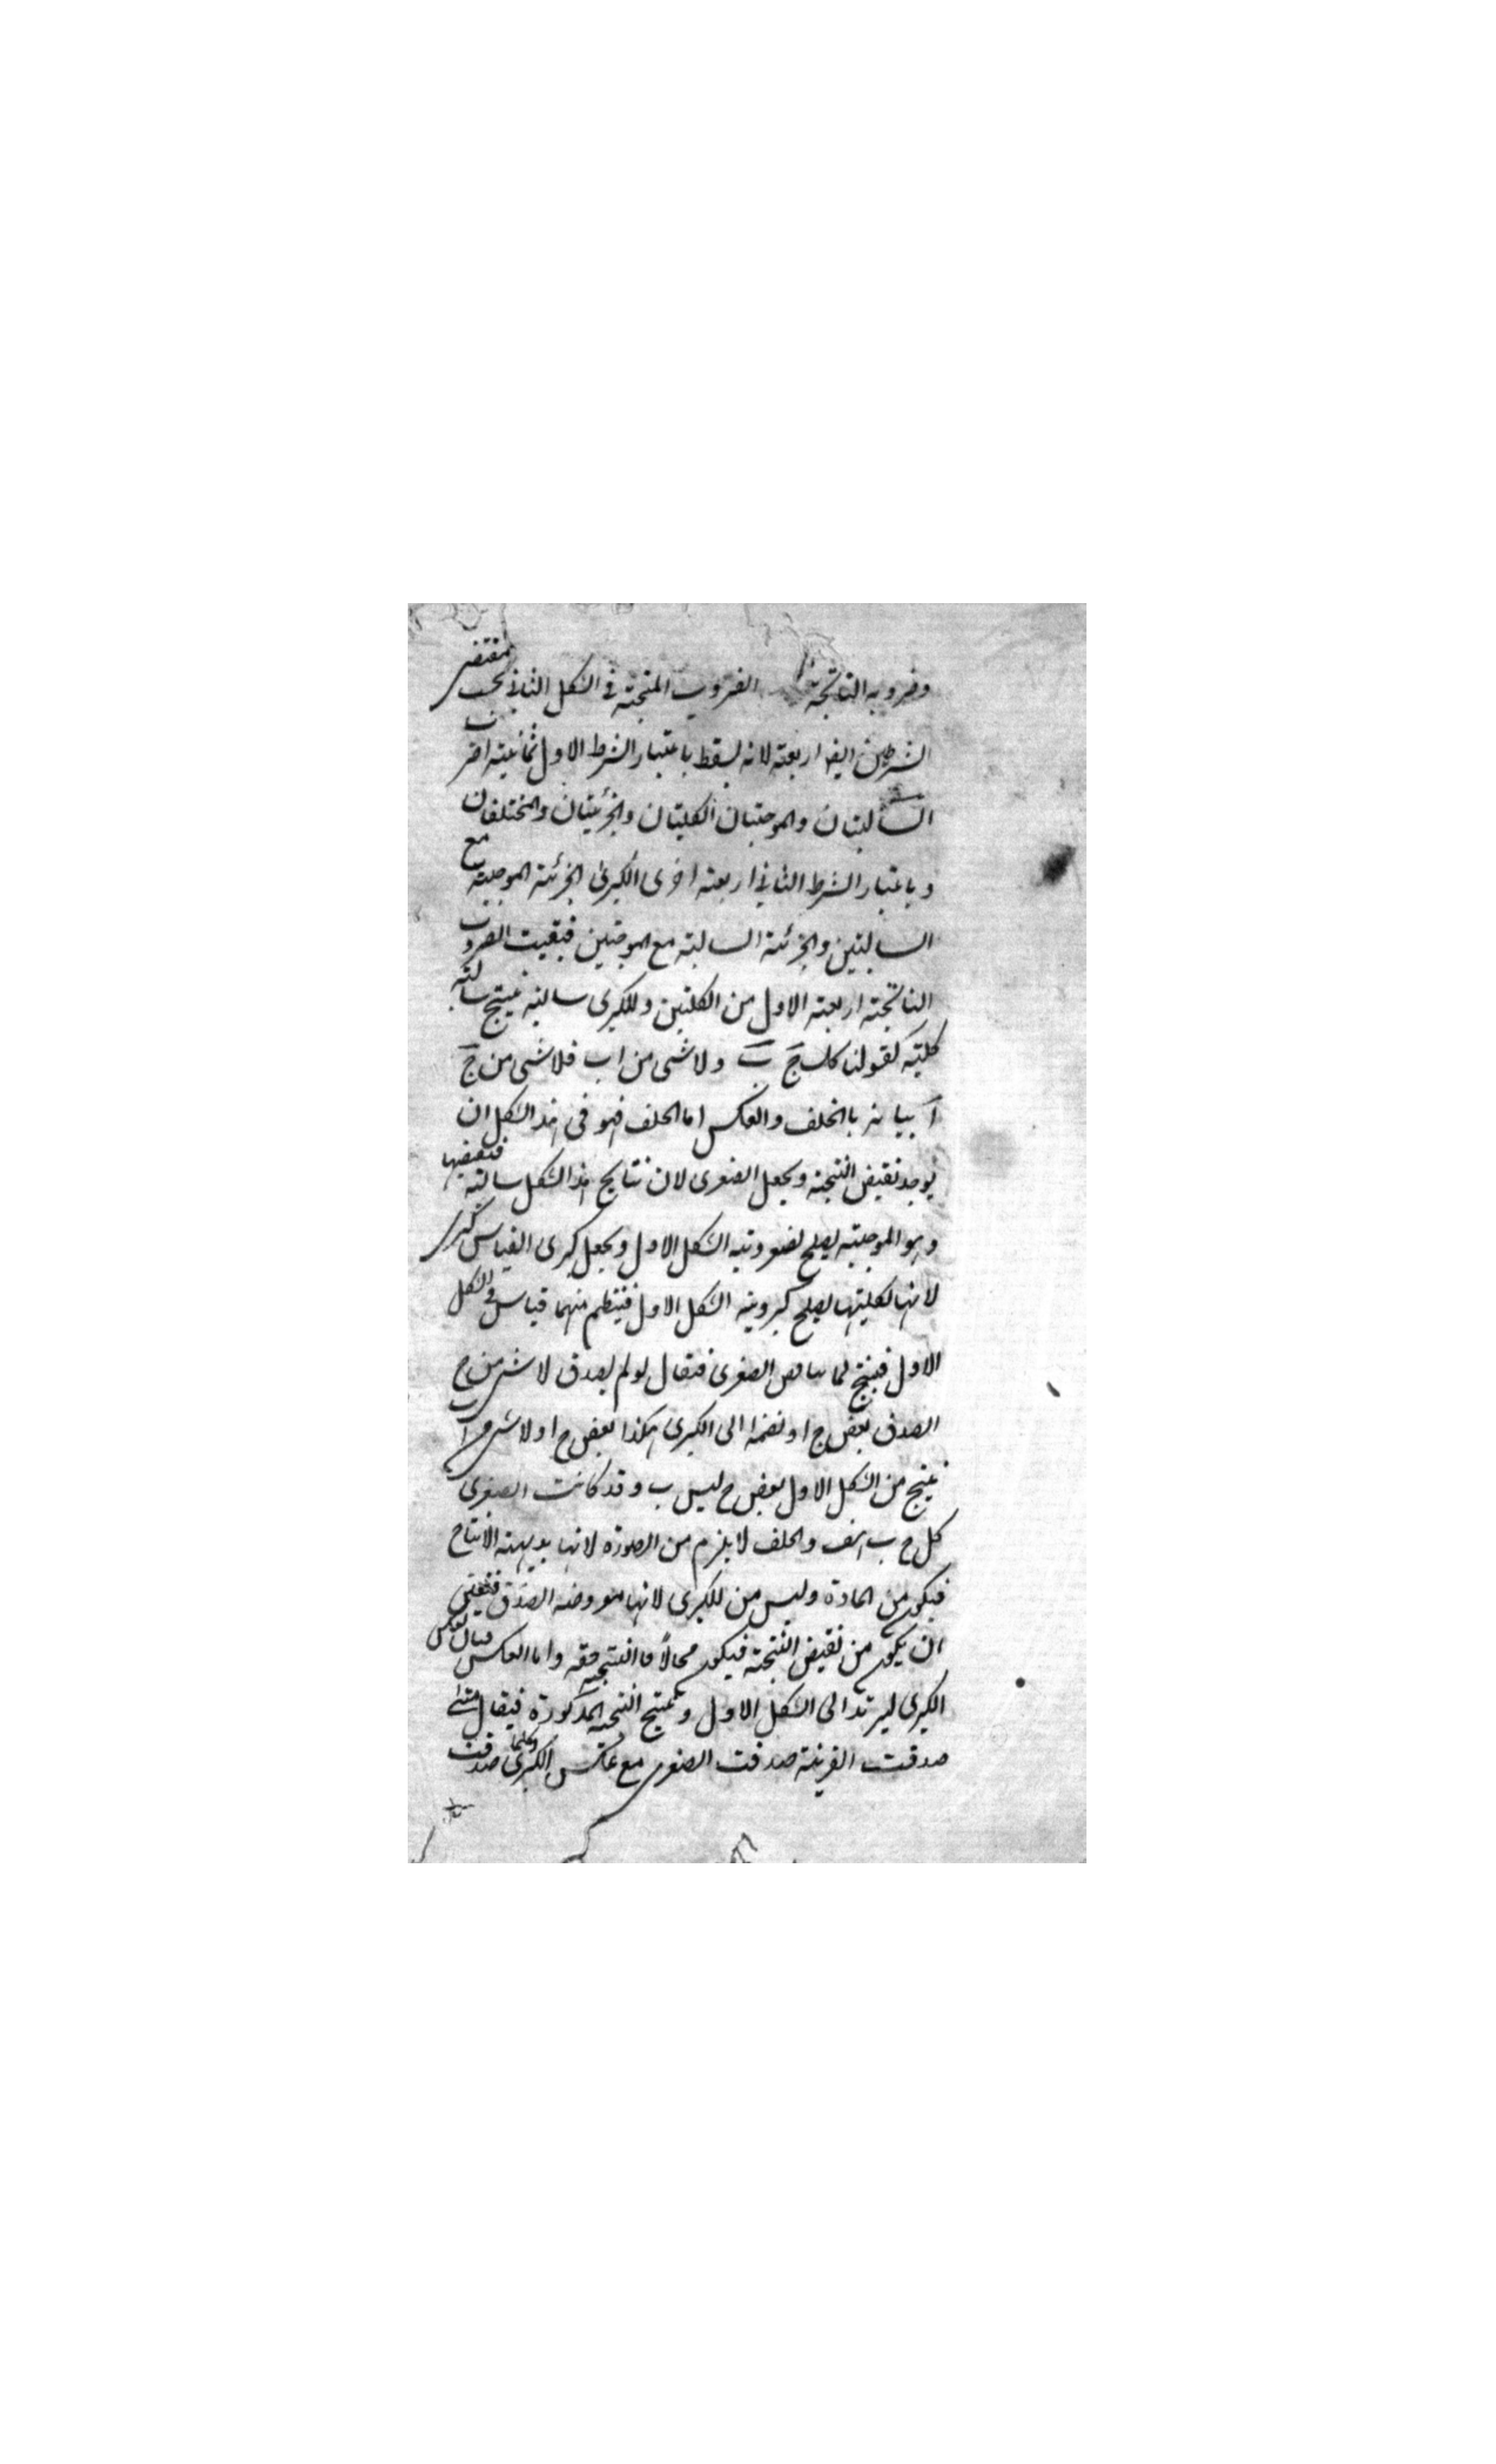 وضروبه الناتجة الضروب المنتجة في الشكل الثاني بحسب مقتضى
الشرطين ايضا اربعة لانه يسقط باعتبار الشرط الاول ثمانية اضرب
السالبتان والموجبتان الكليتان والجزئيتان والمختلفان
وباعتبار الشرط الثاني اربعة اخرى الكبرى الجزئية الموجبة مع
السالبتين والجزئية السالبة مع الموجبتين فبقيت الضروب
الناتجة اربعة الاول من الكليتين والكبرى سالبة ينتج سالبة
كلية كقولنا كل ج ب ولا شى من ا ب فلا شى من ج
ا بيانه بالخلف والعكس اما الخلف فهو في هذا الشكل ان
يوجد نقيض النتيجة ويجعل الصغرى لان نتايج هذا الشكل سالبة فنقيضها
وهو الموجبة يصلح لصغروية الشكل الاول ويجعل كبرى القياس كبرى
لانها لكليتها يصلح كبروية الشكل الاول فينتظم منهما قياس في الشكل
الاول فينتج لما يناقض الصغرى فيقال لو لم يصدق لا شى من ج
الصدق بعض ج ا ونضمه الى الكبرى هكذا بعض ج ا ولا شى من ا ب
ينتج من الشكل الاول بعض ج ليس ب وقد كانت الصغرى
كل ج ب هف والخلف لا يلزم من الصورة لانها بديهة الانتاج
فيكون من المادة وليس من الكبرى لانها مفروضة الصدق فتعين
ان يكون من نقيض النتيجة فيكون محالا فالنتيجة حقه واما العكس فبان يعكس
الكبرى ليرتد الى الشكل الاول وينتج النتيجة المذكورة فيقال متى
صدقت القرينة صدقت الصغرى مع عكس الكبرى وكلما صدقت